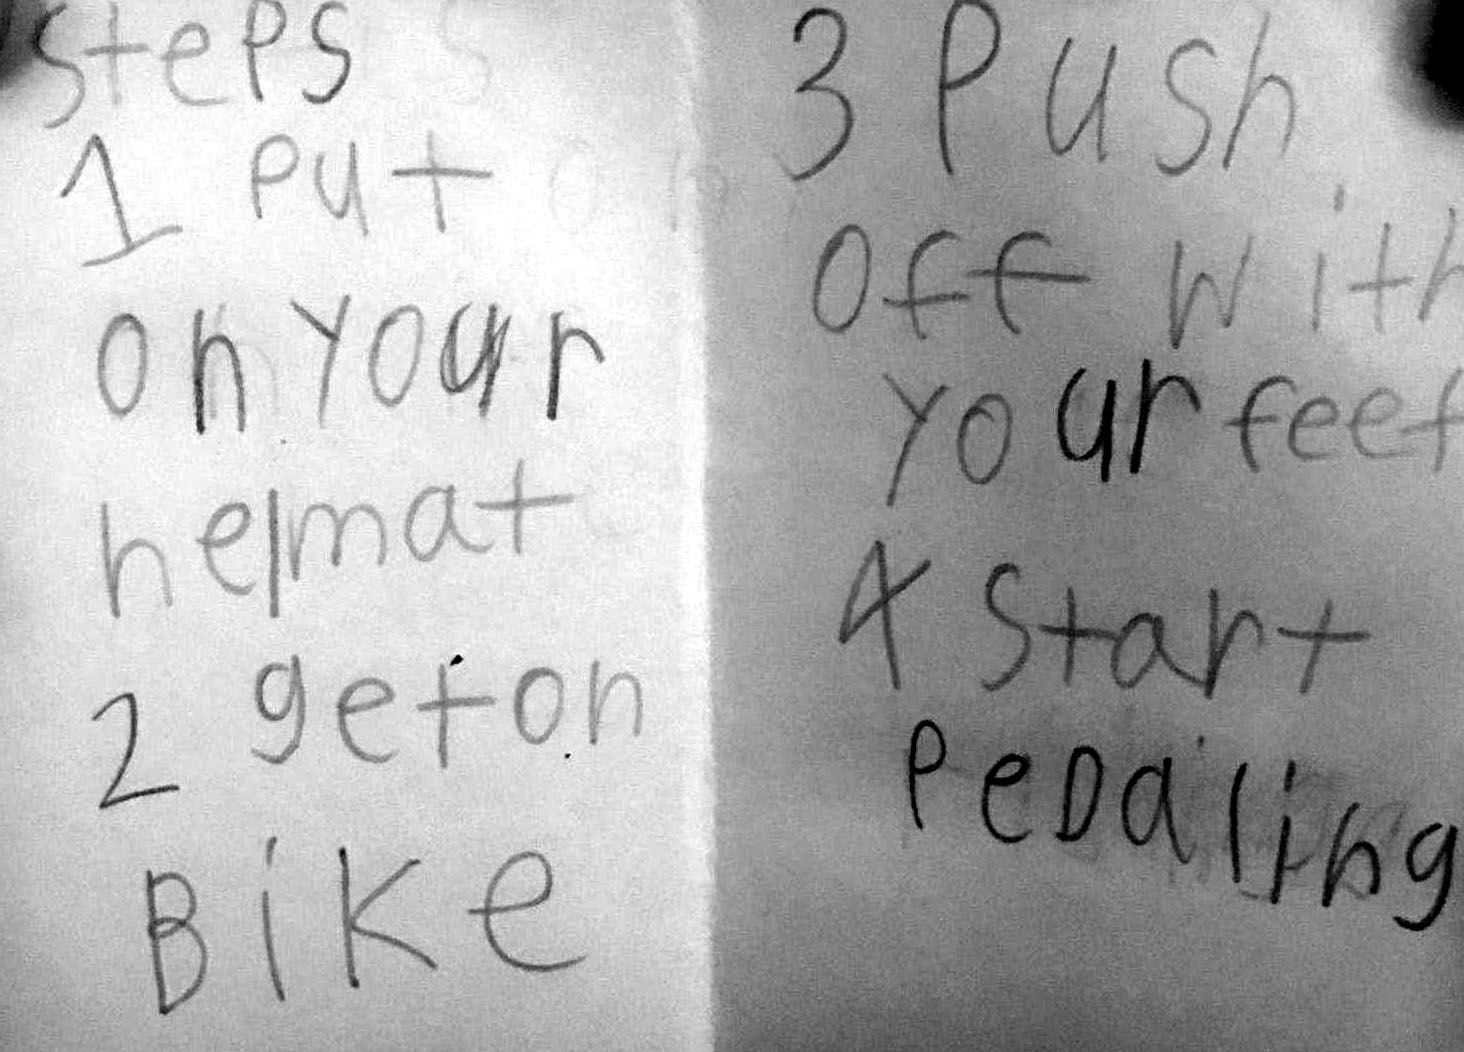 steps
1 Put
on your
helmat
2 get on
Bike
3 Push
off with
your feet
4 Start
PeDaling